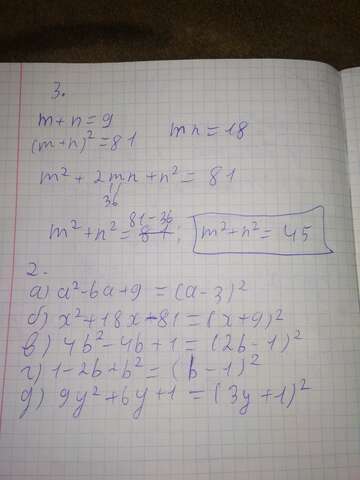 3.
m+n=9
(m+n)²=81 mn=18
m²+2mn+n²=81
36
81-36
m²+n²=81; m²+n²=45
2.
а) a²-6a+9=(a-3)²
б) x²+18x+81=(x+9)²
в) 4b²-4b+1=(2b-1)²
г) 1-2b+b²=(b-1)²
д) 9y²+6y+1=(3y+1)²